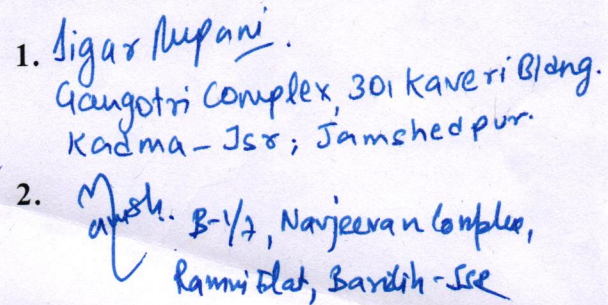 1. Jigar Rupani.
Gangotri Complex, 301 Kaveri Bldng.
Kadma - Jsr; Jamshedpur.
2. B-1/7, Navjeevan Complex,
Flat, Baridih - Jsr